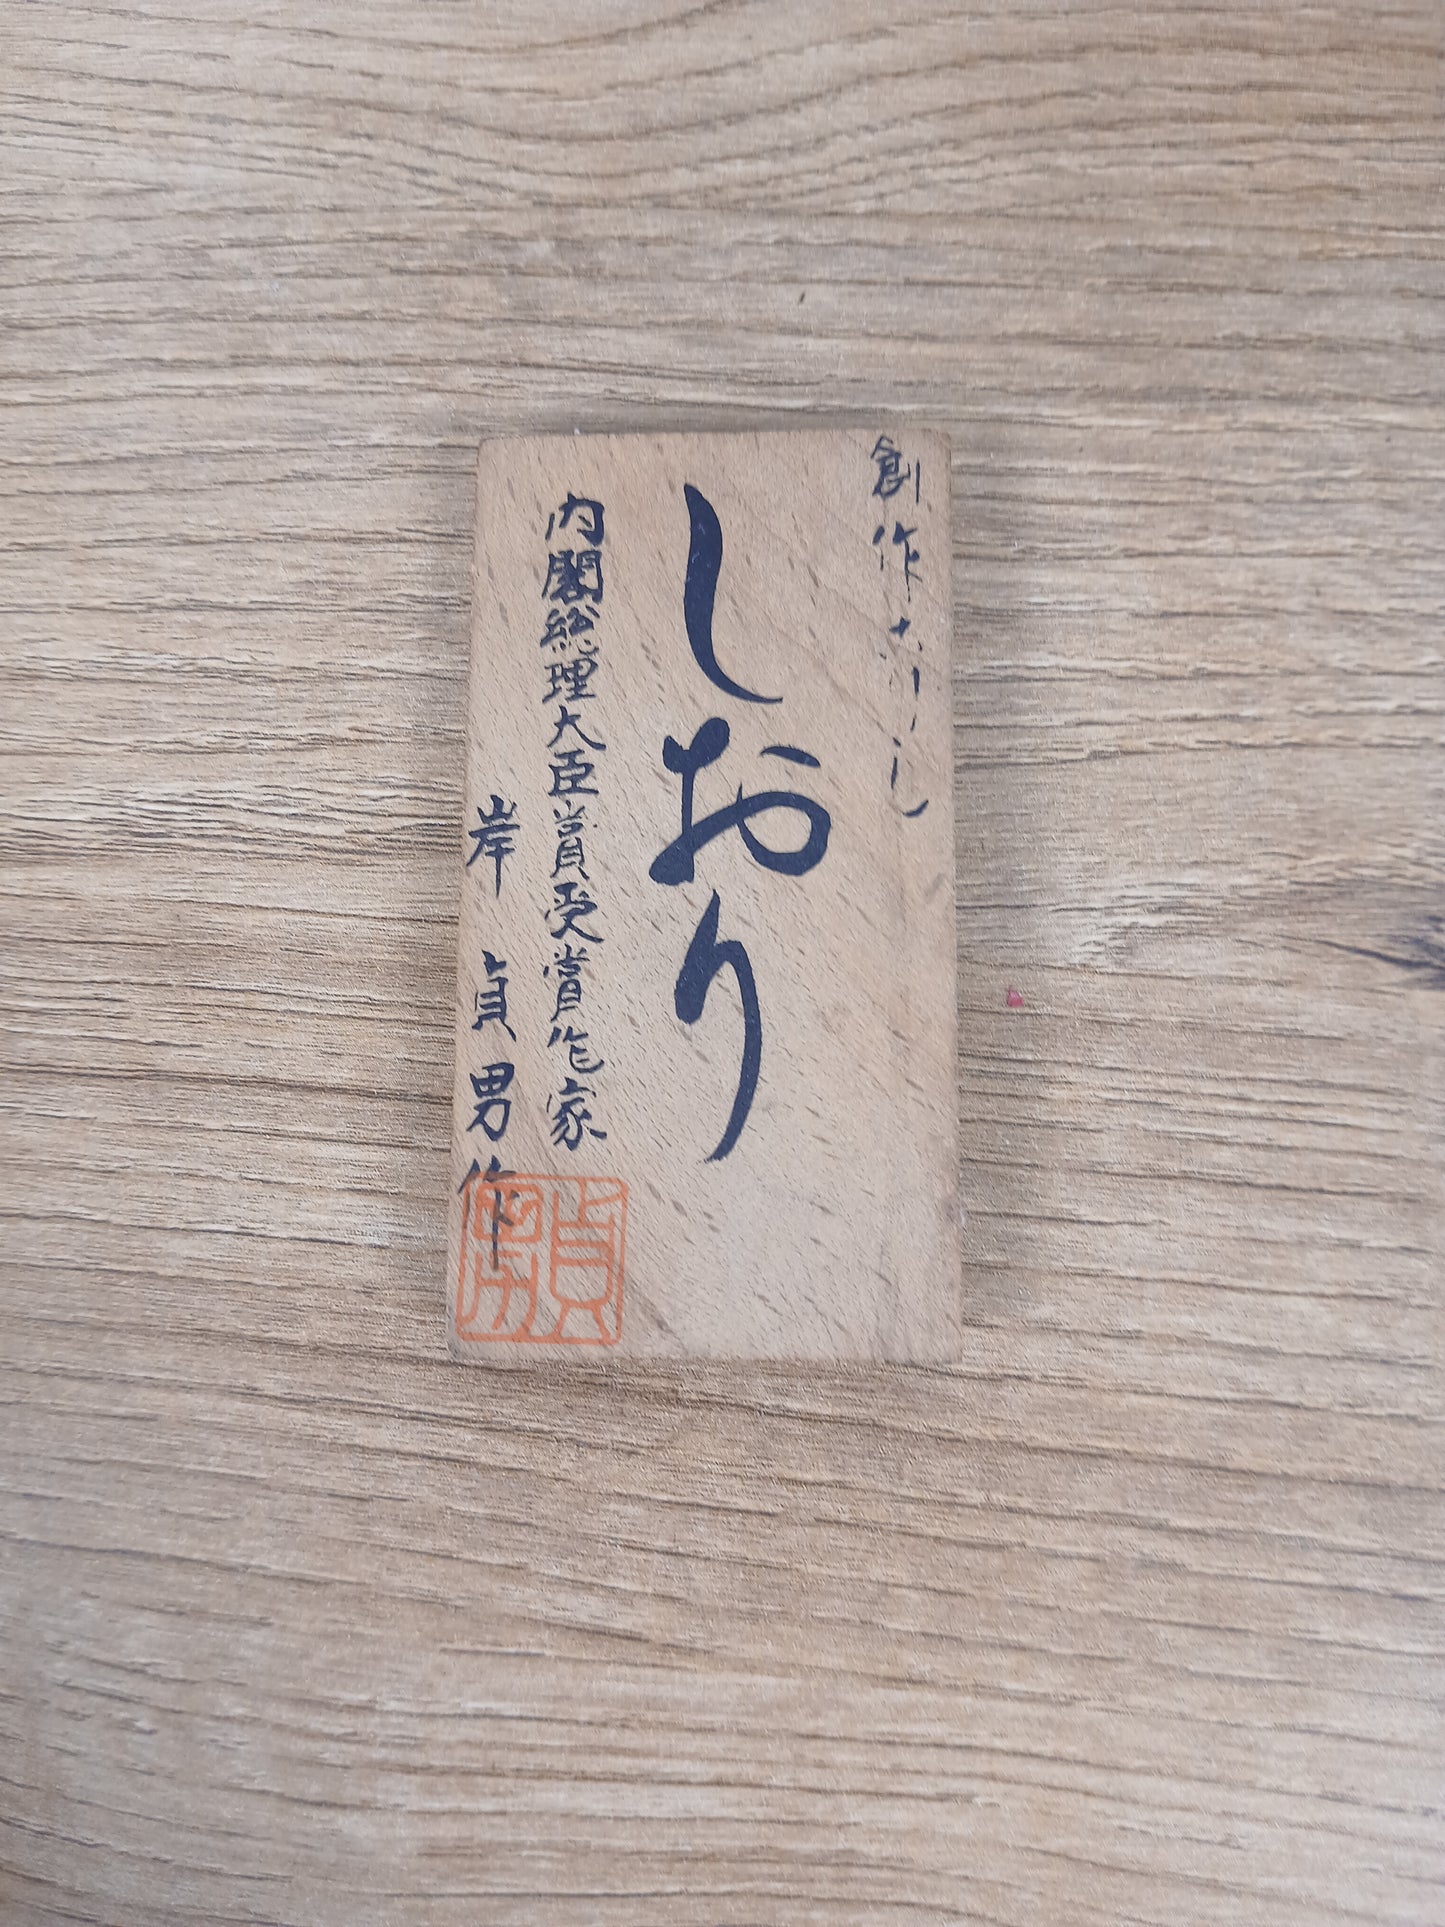 創作こけし
しおり
内閣総理大臣賞受賞作家
岸 貞男作
貞男